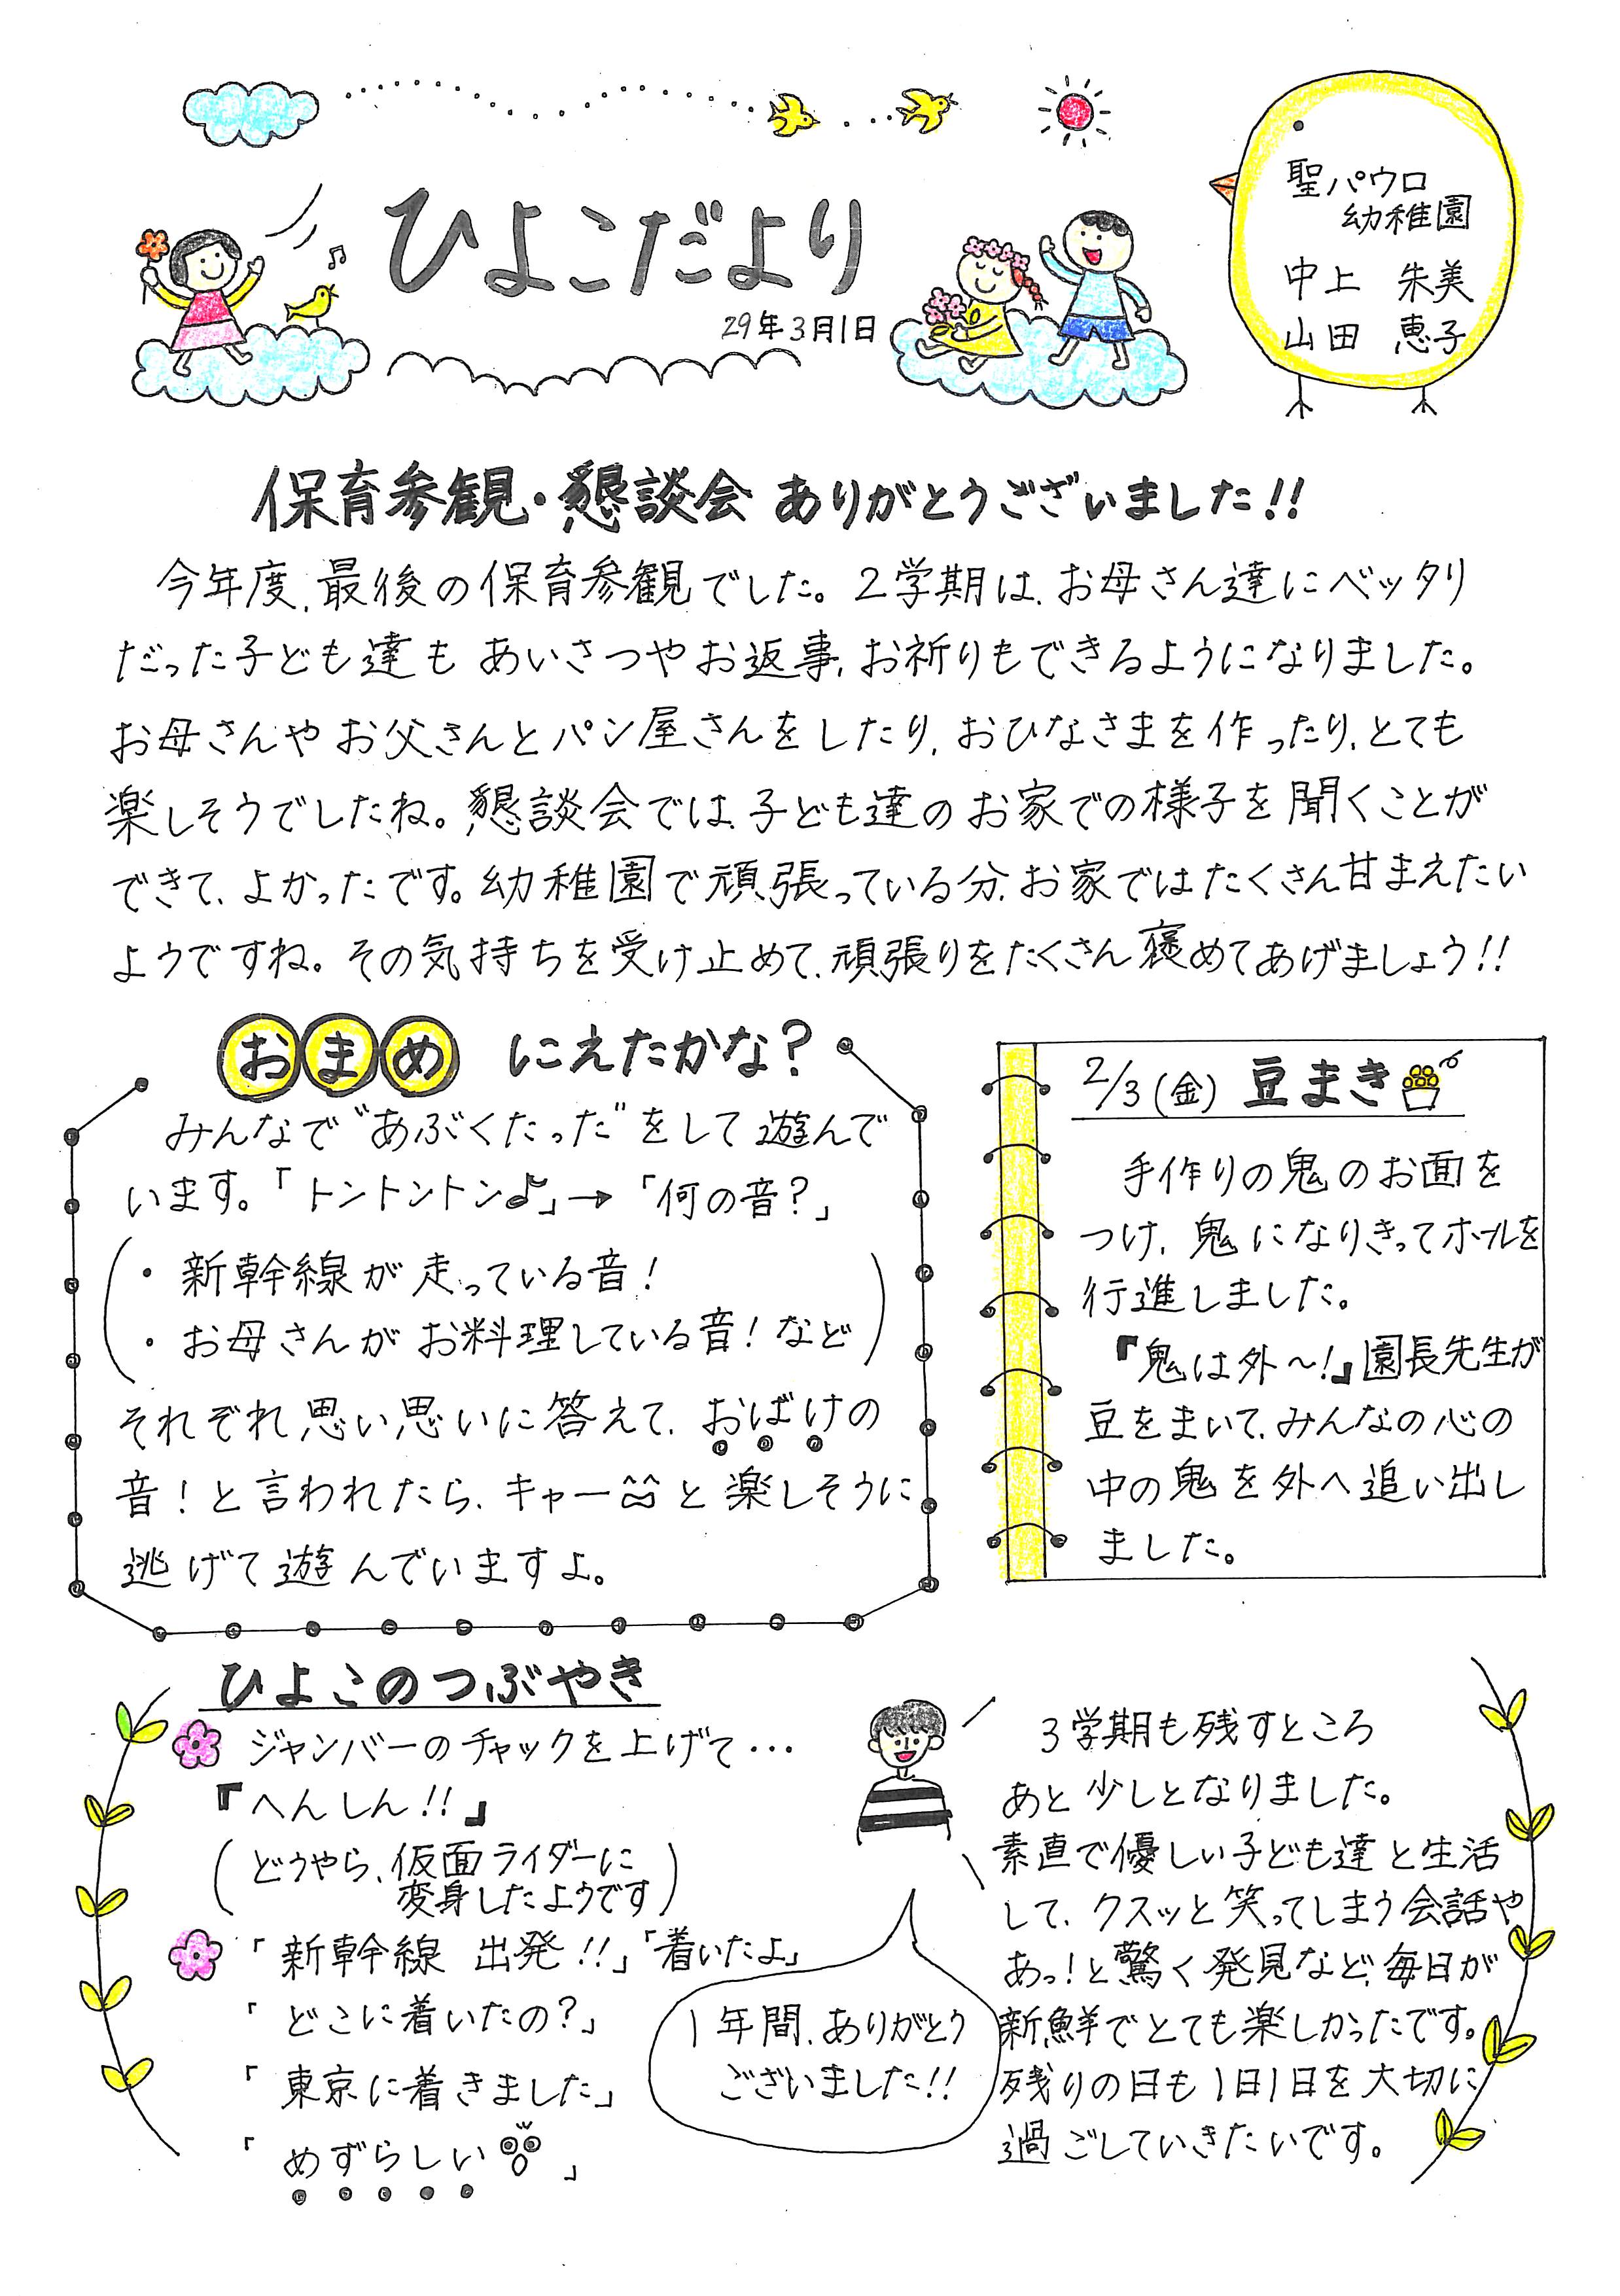 ひよこだより
29年3月1日
聖パウロ
幼稚園
中上 朱美
山田 恵子
保育参観・懇談会 ありがとうございました!!
今年度、最後の保育参観でした。2学期は、お母さん達にベッタリ
だった子ども達も あいさつやお返事、お祈りもできるようになりました。
お母さんやお父さんとパン屋さんをしたり、おひなさまを作ったり、とても
楽しそうでしたね。懇談会では、子ども達のお家での様子を聞くことが
できて、よかったです。幼稚園で頑張っている分、お家ではたくさん甘まえたい
ようですね。その気持ちを受け止めて、頑張りをたくさん褒めてあげましょう!!
おまめ にえたかな?
みんなで"あぶくたった"をして遊んで
います。「トントントン♪」→「何の音?」
・新幹線が走っている音!
・お母さんがお料理している音!など
それぞれ思い思いに答えて、おばけの
音!と言われたら、キャー と楽しそうに
逃げて遊んでいますよ。
2/3(金) 豆まき
手作りの鬼のお面を
つけ、鬼になりきってホールを
行進しました。
『鬼は外〜!』園長先生が
豆をまいて、みんなの心の
中の鬼を外へ追い出し
ました。
ひよこのつぶやき
ジャンバーのチャックを上げて…
『へんしん!!』
(どうやら、仮面ライダーに
変身したようです)
「新幹線 出発!!」「着いたよ」
「どこに着いたの?」
「東京に着きました」
「めずらしい 」
1年間、ありがとう
ございました!!
3学期も残すところ
あと少しとなりました。
素直で優しい子ども達と生活
して、クスッと笑ってしまう会話や
あっ!と驚く発見など、毎日が
新鮮でとても楽しかったです。
残りの日も1日1日を大切に
過ごしていきたいです。